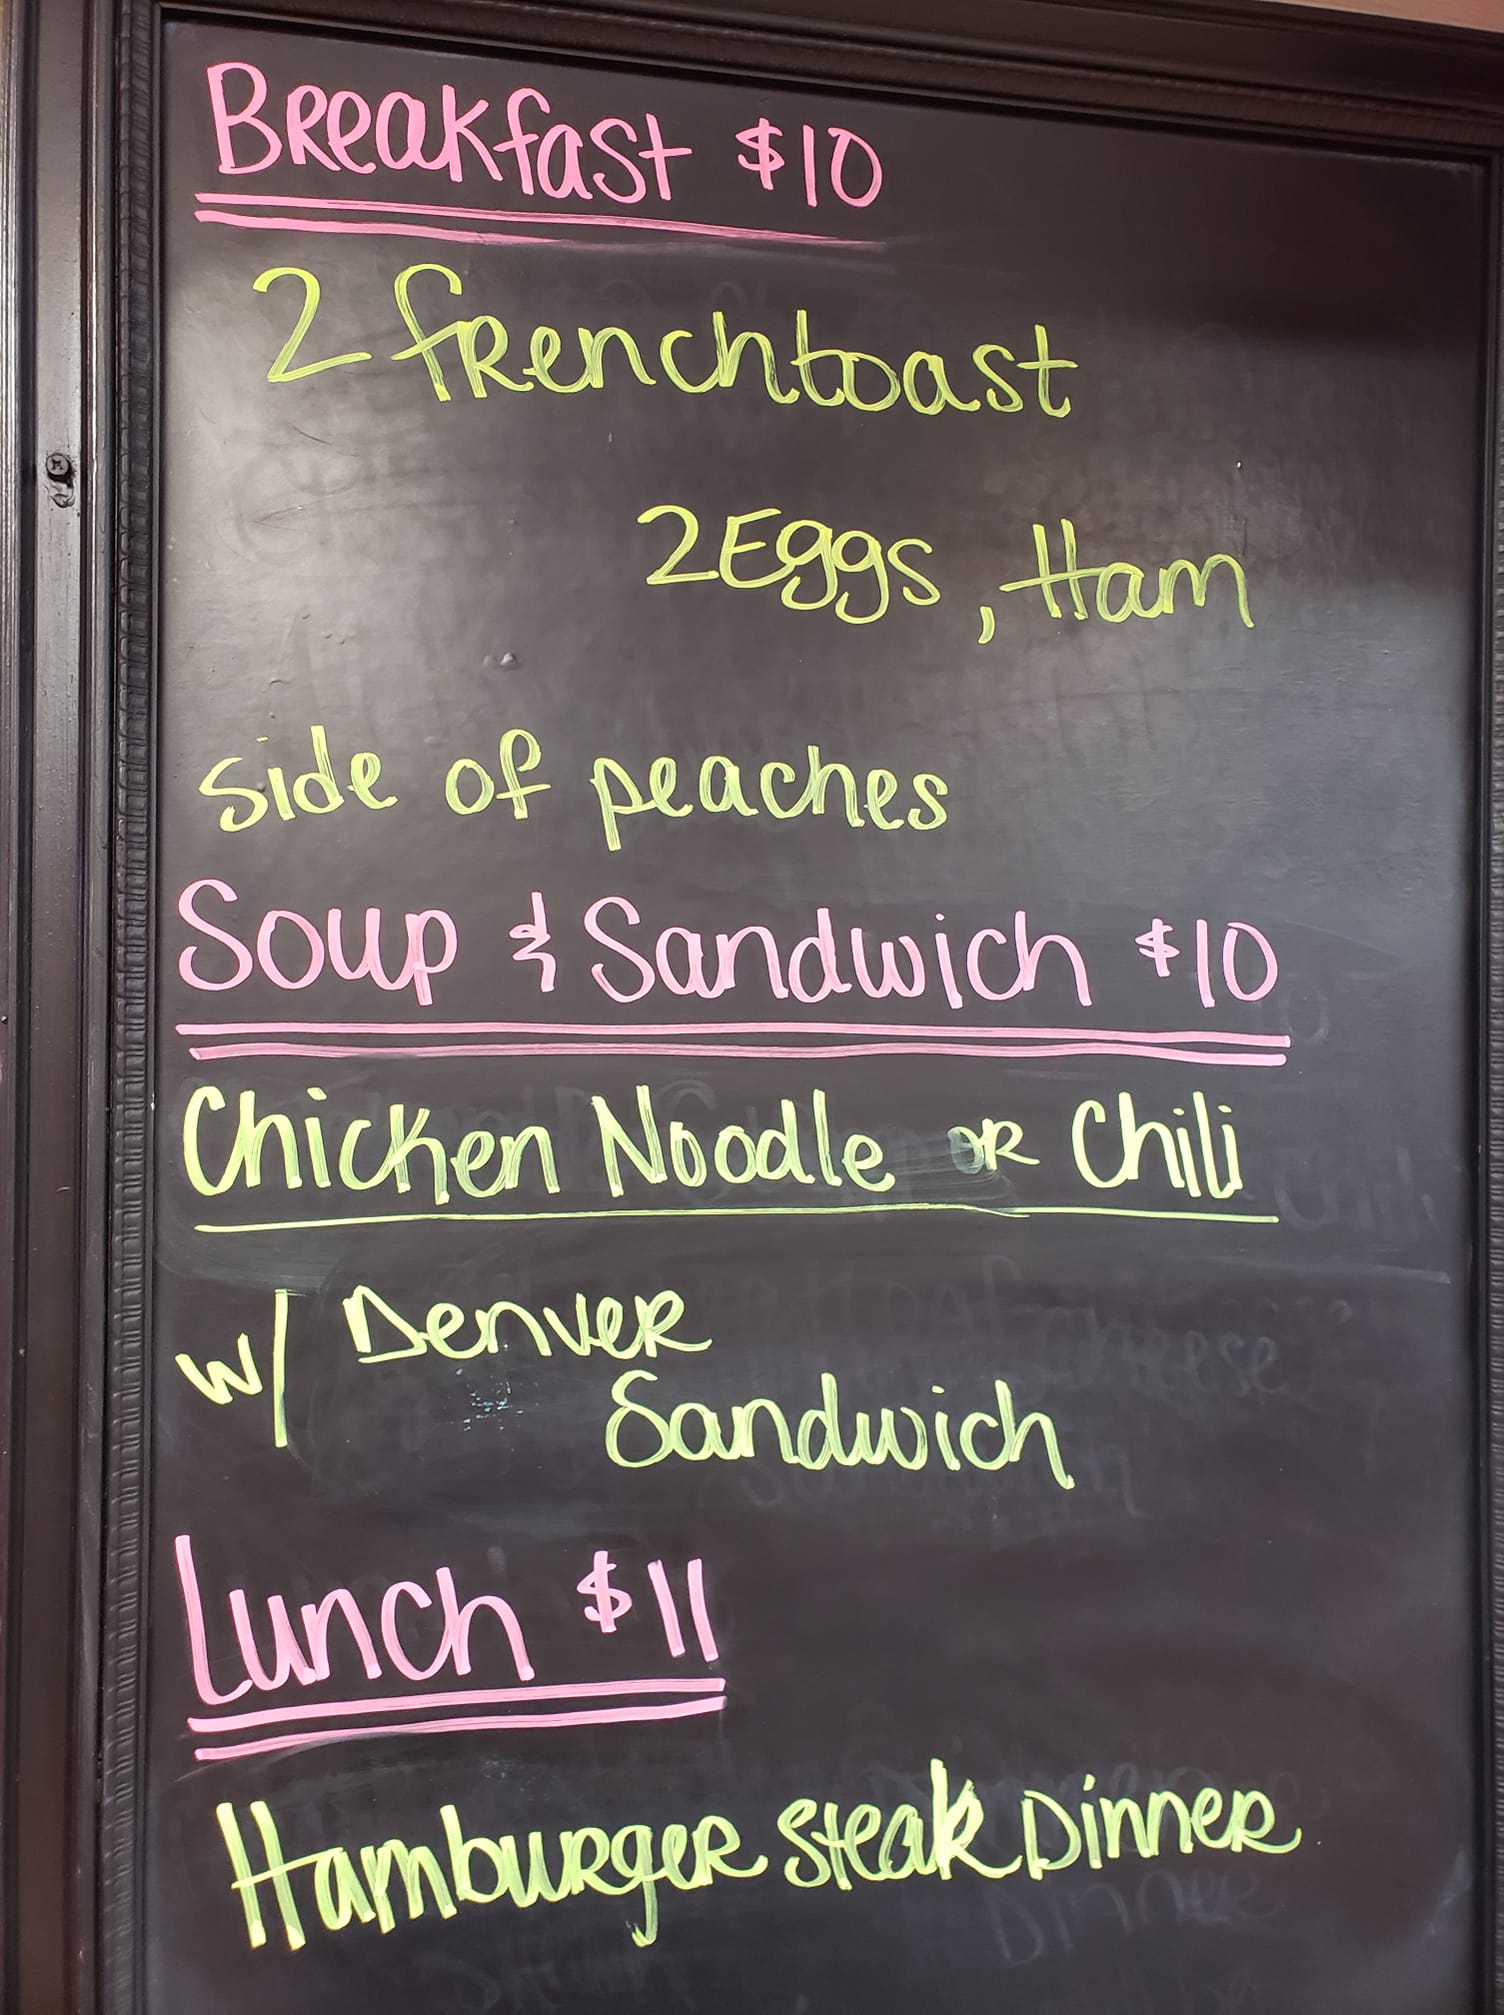 Breakfast $10
2 frenchtoast
2 Eggs, Ham
side of peaches
Soup & Sandwich $10
Chicken Noodle OR Chili
w/ Denver
Sandwich
Lunch $11
Hamburger Steak Dinner